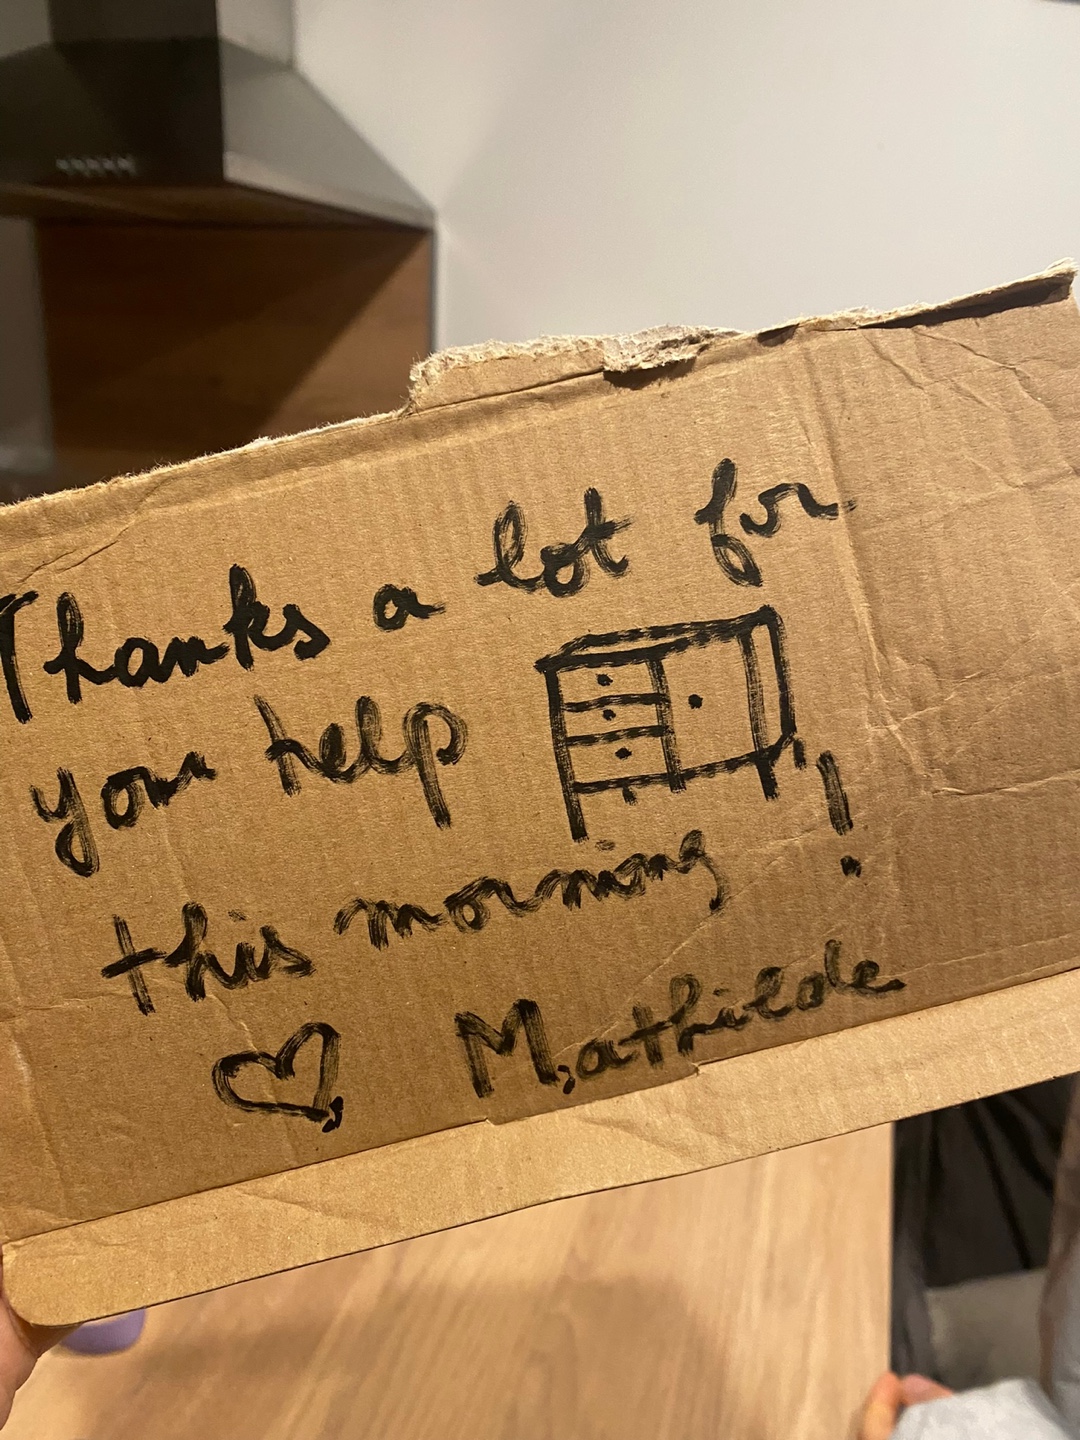 Thanks a lot for
your help
this morning!
Mathilde